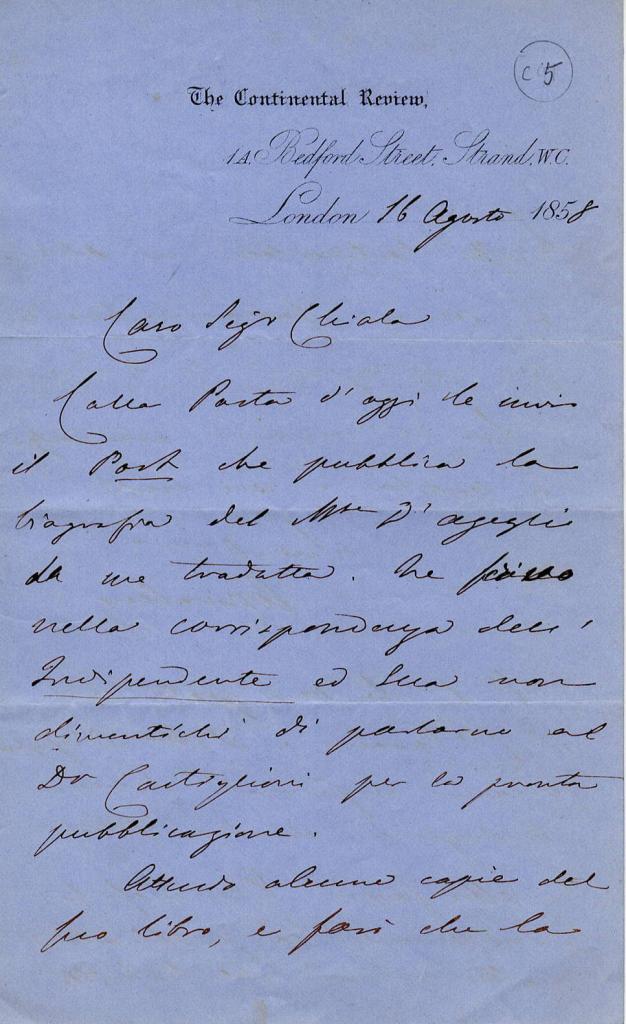 C 5
The Continental Review,
1A. Bedford Street. Strand. W.C.
London 16 Agosto 1858
Caro Sigr Chiala
Colla Posta d'oggi le invio
il Post che pubblica la
biografia del Mse D'azeglio
da me tradotta. Ne
nella corrispondenza dell'
Indipendente ed Ella non
dimentichi di parlarne al
Dr Castiglioni per la pronta
pubblicazione.
Attendo alcune copie del
suo libro, e farò che la